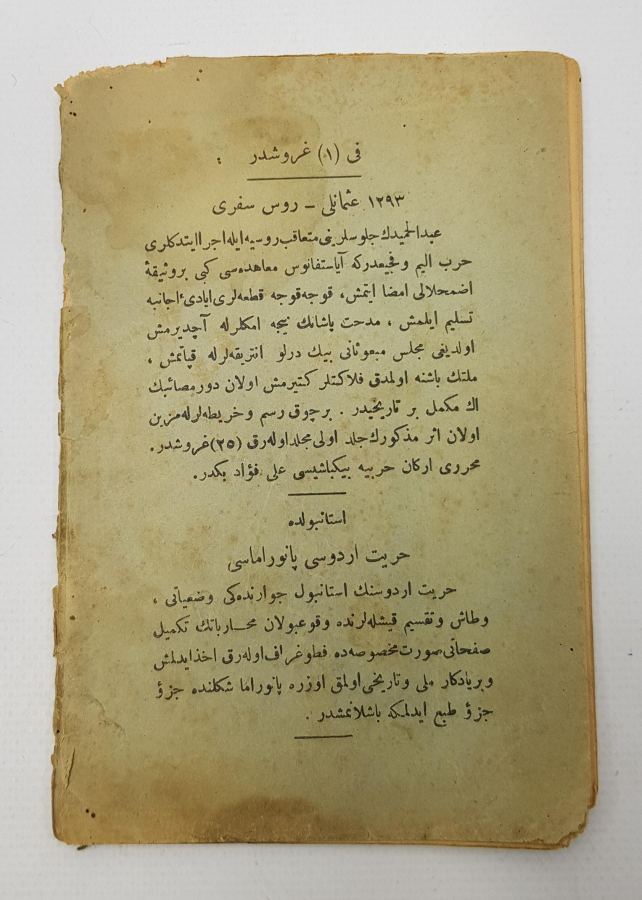 فی (١) غروشدر :
١٢٩٣ عثمانلی - روس سفری
عبدالحمیدك جلوسلرینی متعاقب روسیه ایله اجرا ایتدكلری
حرب الیم و فجیعدركه آیاستفانوس معاهده‌سی كبی بروثیقهٔ
اضمحلالی امضا ایتمش، قوجه‌قوجه قطعه‌لری ایادیٔ اجانبه
تسلیم ایلمش ، مدحت پاشانك نیجه امكلرله آچدیرمش
اولدیغی مجلس مبعوثانی بیك درلو انتریقه‌لرله قپاتمش ،
ملتك باشنه اولمدق فلاكتلر كتیرمش اولان دور مصائبك
اك مكمل بر تاریخیدر . برچوق رسم و خریطه‌لرله مزین
اولان اثر مذكورك جلد اولی مجلداوله‌رق (٢٥) غروشدر .
محرری اركان حربیه بیكباشیسی علی فؤاد بكدر .
استانبولده
حریت اردوسی پانوراماسی
حریت اردوسنك استانبول جوارنده‌كی وضعیاتی ،
وطاش وتقسیم قیشله‌لرنده وقوعبولان محارباتك تكمیل
صفحاتی صورت مخصوصه‌ده فطوغراف اوله‌رق اخذایدلمش
وبریادكار ملی وتاریخی اولمق اوزره پانوراما شكلنده جزؤ
جزؤ طبع ایدلمكه باشلانمشدر .